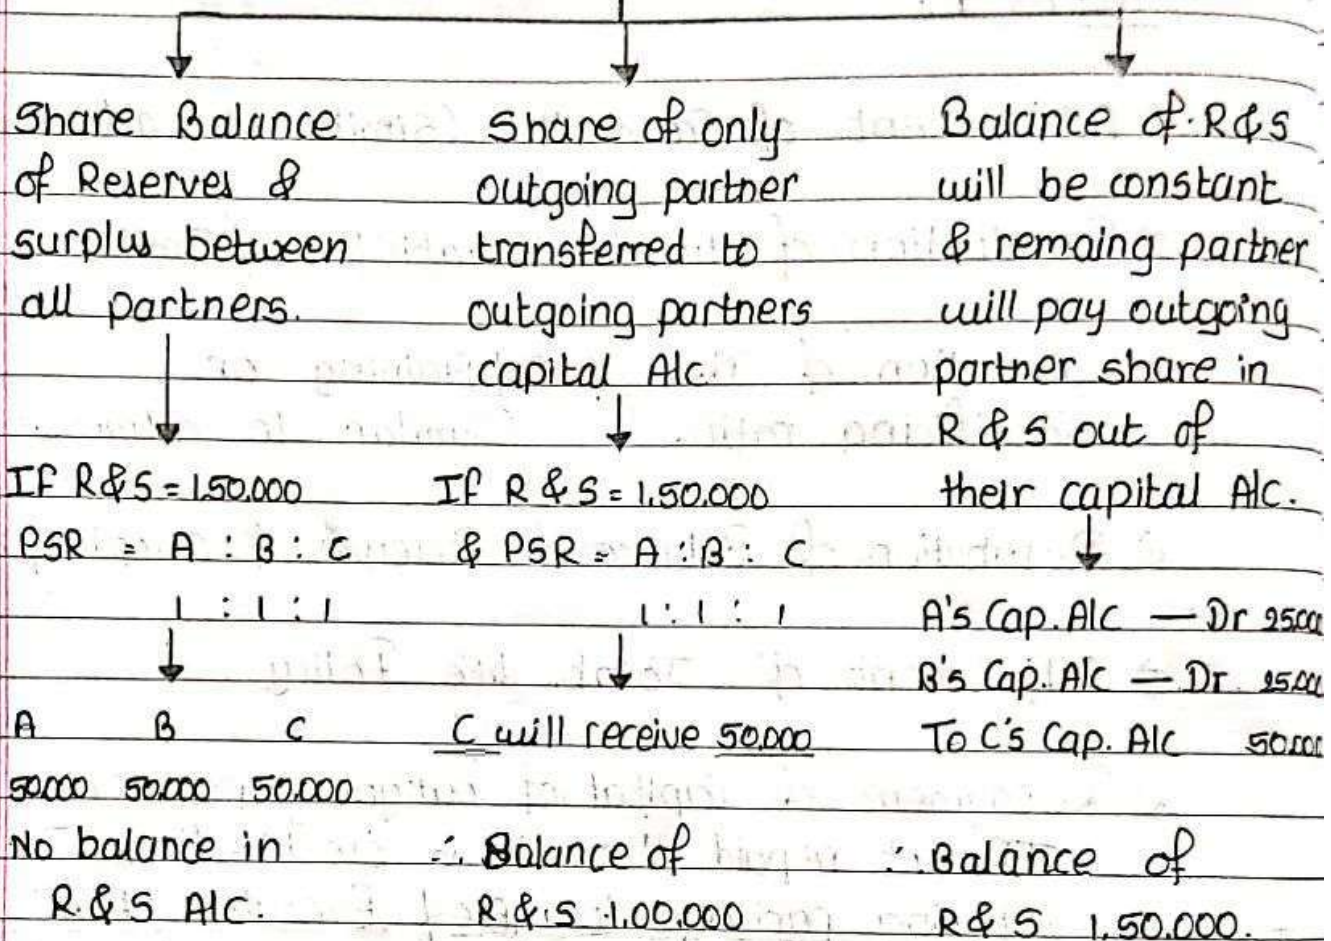 Share Balance
of Reserves &
surplus between
all partners.
If R&S = 1,50,000
PSR = A : B : C
1 : 1 : 1
A B C
50,000 50,000 50,000
No balance in
R & S A/c.
Share of only
outgoing partner
transferred to
outgoing partners
capital A/c.
If R & S = 1,50,000
& PSR = A : B : C
1 : 1 : 1
C will receive 50,000
∴ Balance of
R & S 1,00,000
Balance of R&S
will be constant
& remaing partner
will pay outgoing
partner share in
R & S out of
their capital A/c.
A's Cap. A/c — Dr 25,000
B's Cap. A/c — Dr 25,000
To C's Cap. A/c 50,000
∴ Balance of
R & S 1,50,000.